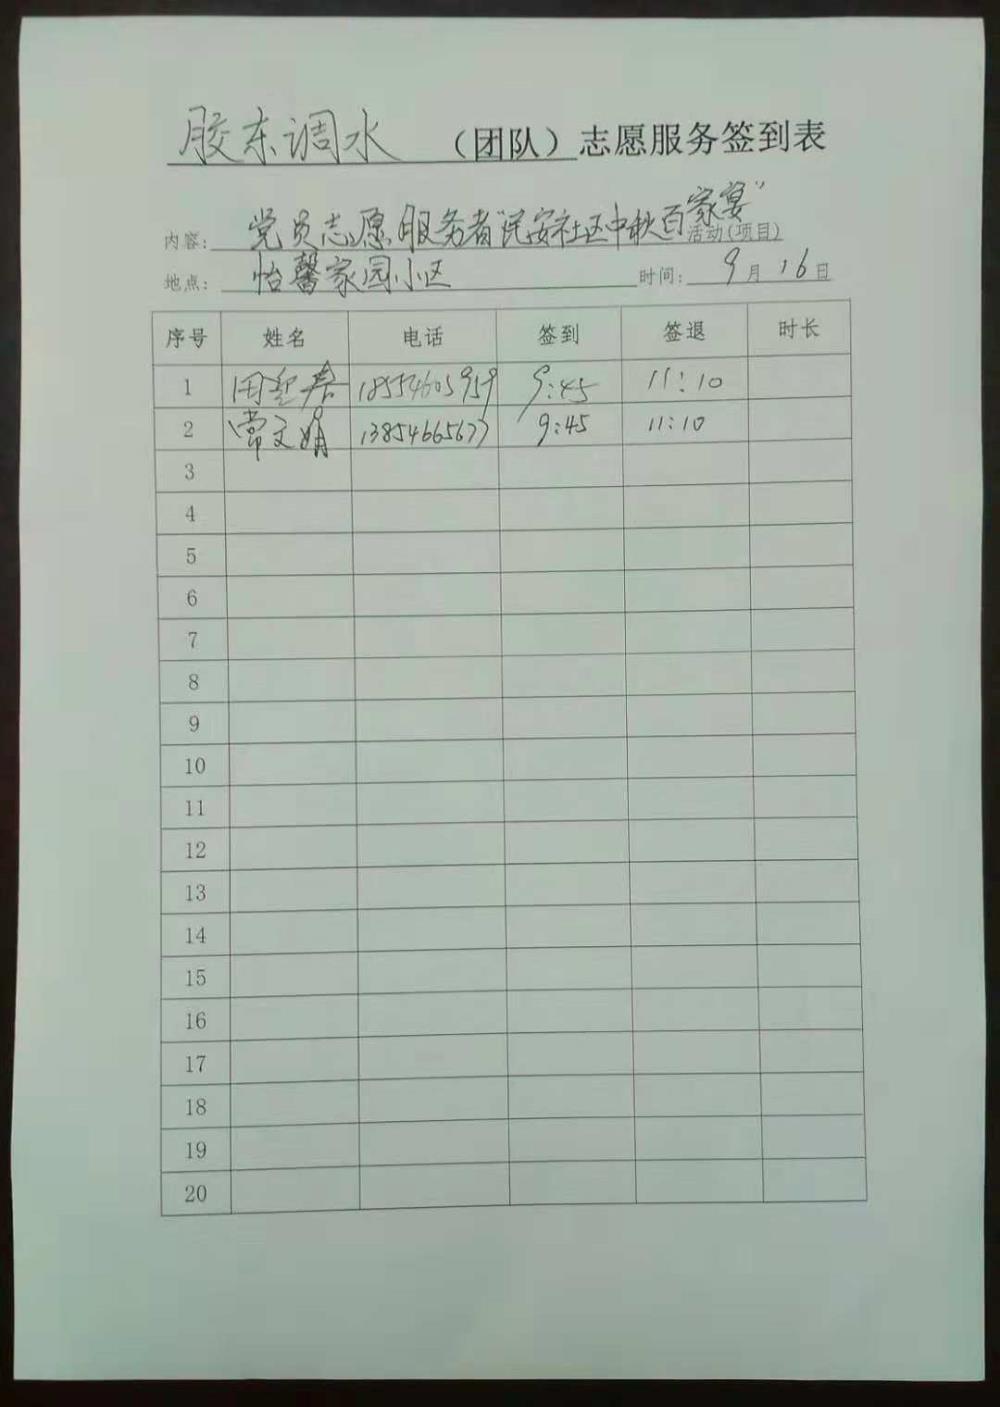 胶东调水（团队）志愿服务签到表
内容：党员志愿服务者“民安社区中秋百家宴”活动(项目)
地点：怡馨家园小区 时间：9月16日
序号 姓名 电话 签到 签退 时长
1 18554605959 9:45 11:10
2 常文娟 13854665677 9:45 11:10
3
4
5
6
7
8
9
10
11
12
13
14
15
16
17
18
19
20